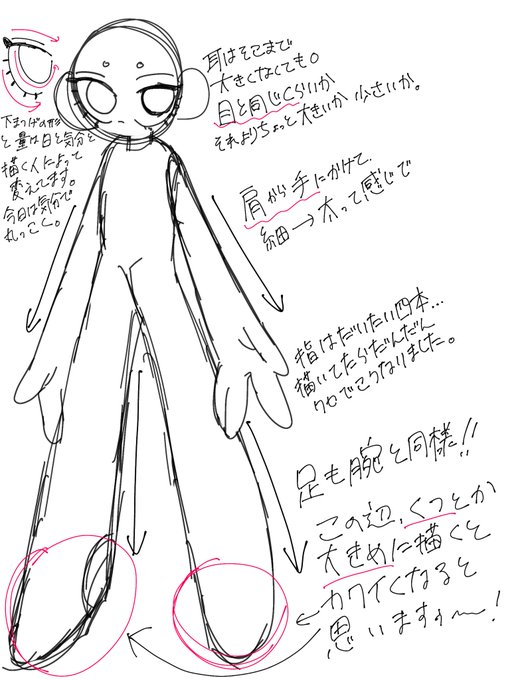 耳はそこまで
大きくなくても。
目と同じくらいか
それよりちょっと大きいか 少さいか。
下まつげの形
と量は日と気分と
描く人によって
変えてます。
今日は気分で
れっこく。
肩から手にかけて、
細→太って感じで
指はだいたい四本…
描いてたらだんだん
クセでこうなりました。
足も腕と同様!!
この辺、くつとか
大きめに描くと
カワイくなると
思いますぅ〜!